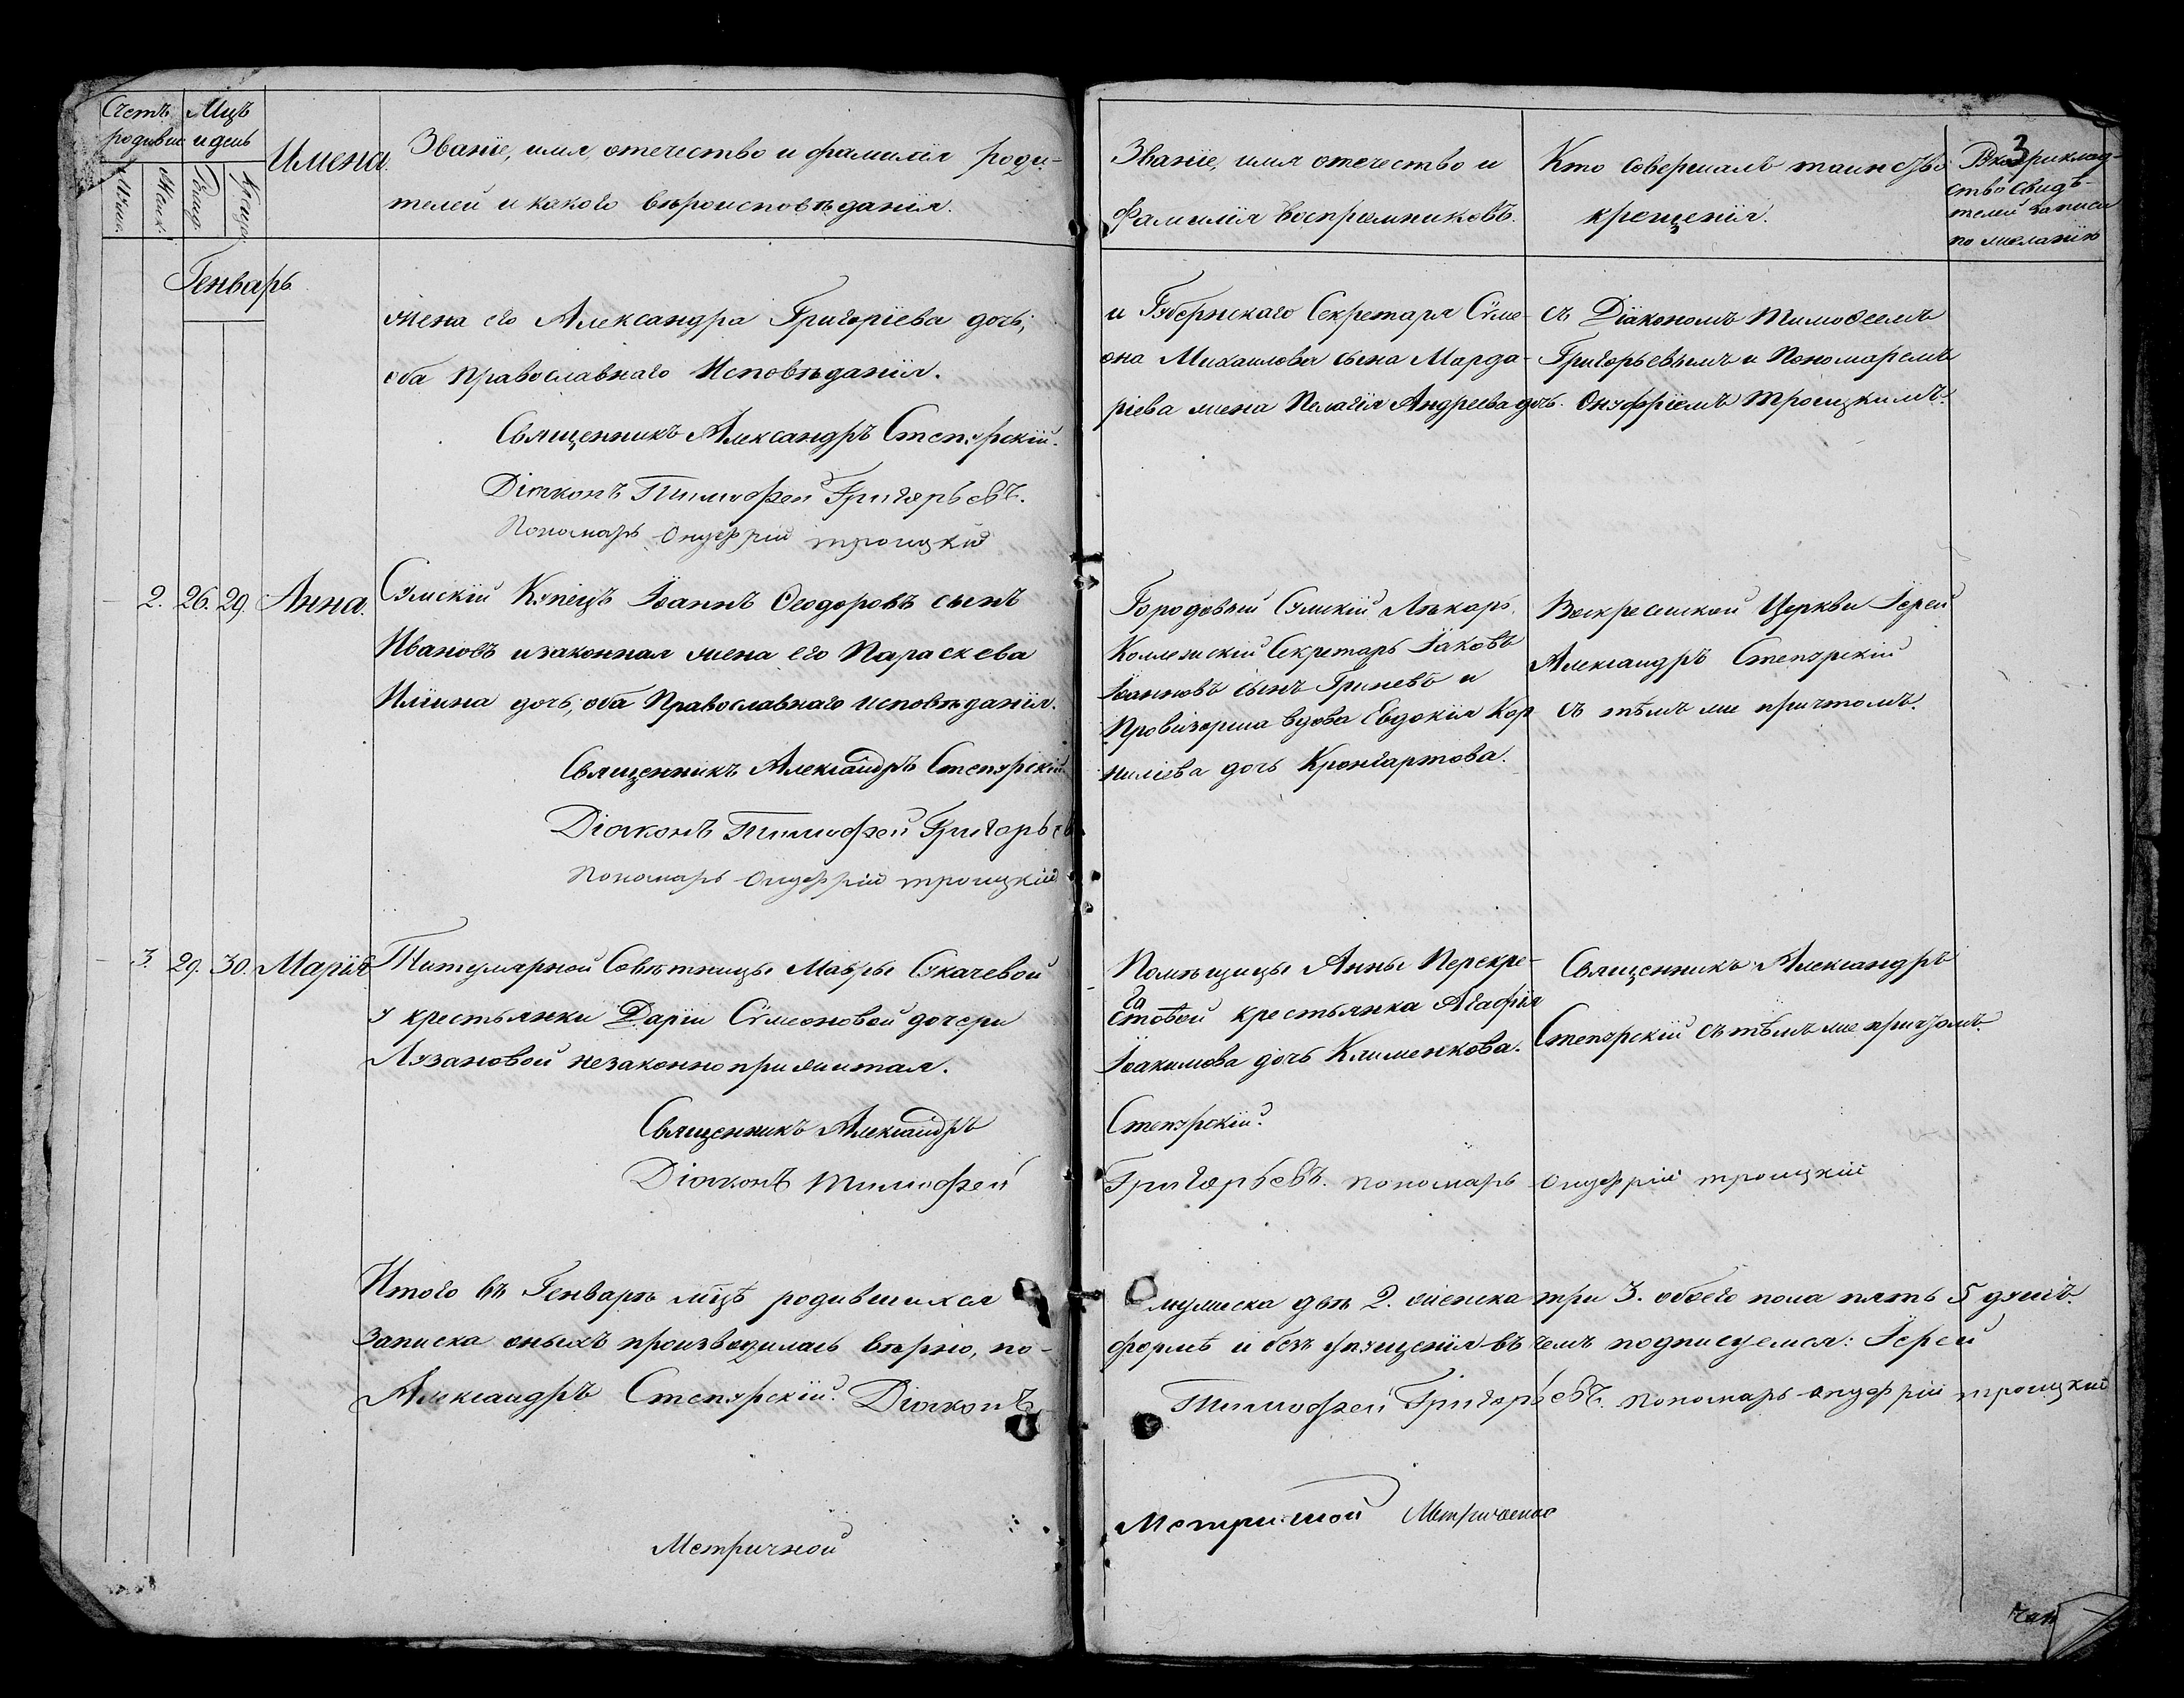 Счетъ родивш.
Мцъ и день
Имена.
Званіе, имя, отечество и фамилія роди-
телей и какого вѣроисповѣданія.
Женск.
Крещен.
Генварь
жена его Александра Григоріева дочь,
оба православнаго Исповѣданія.
Священникъ Александръ Степурскій.
Діаконъ Тимофей Григорьевъ.
Пономарь Онуфрій Троицкій
2. 26. 29. Анна.
Сумскій Купецъ Іоаннъ Ѳеодоровъ сынъ
Ивановъ и законная жена его Параскева
Иліина дочь, оба Православнаго исповѣданія.
Священникъ Александръ Степурскій.
Діаконъ Тимофей Григорьев
Пономарь Онуфрій Троицкій
3. 29. 30. Марія
Титулярной Совѣтницы Мавры Скачевой
у крестьянки Даріи Сѵмеоновой дочери
Лузановой незаконно прижитая.
Священникъ Александръ
Діаконъ Тимофей
Итого въ Генварѣ мцѣ родившихся
записка оныхъ производилась вѣрно, по-
Александръ Степурскій. Діаконъ
Метричной
3
Званіе, имя отечество и
фамилія воспріемниковъ.
Кто совершалъ таинство
крещенія.
Рукоприклад-
ство свидѣ-
телей записи
по желанію
и Губернскаго Секретаря Сѵме-
она Михаилова сына Марда-
ріева жена Пелагія Андреева дочь.
съ Діакономъ Тимоѳеемъ
Григорьевымъ и Пономаремъ
Онуфріемъ Троицкимъ.
Городовый Сумскій Лѣкарь,
Коллежскій Секретарь Іаковъ
Іоанновъ сынъ Гриневъ и
Провизорша вдова Евдокія Кор
ниліева дочь Кронгартова.
Воскресенской Церкви Іерей
Александръ Степурскій
съ тѣмъ же причтомъ.
Помѣщицы Анны Перекре-
стовой крестьянка Агафія
Іоакимова дочь Клименкова.
Священникъ Александръ
Степурскій съ тѣмъ же причтомъ.
Степурскій.
Григорьевъ. Пономарь Онуфрій Троицкій
мужеска два 2. женска три 3. обоего пола пять 5 душъ.
формѣ и безъ упущенія въ чемъ подписуемся: Іерей
Тимофей Григорьевъ. Пономарь Онуфрій Троицкій
Метричной